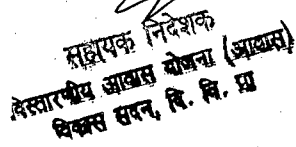 सहायक निदेशक
विस्तारणीय आवास योजना (आवास)
विकास सदन, दि. वि. प्रा